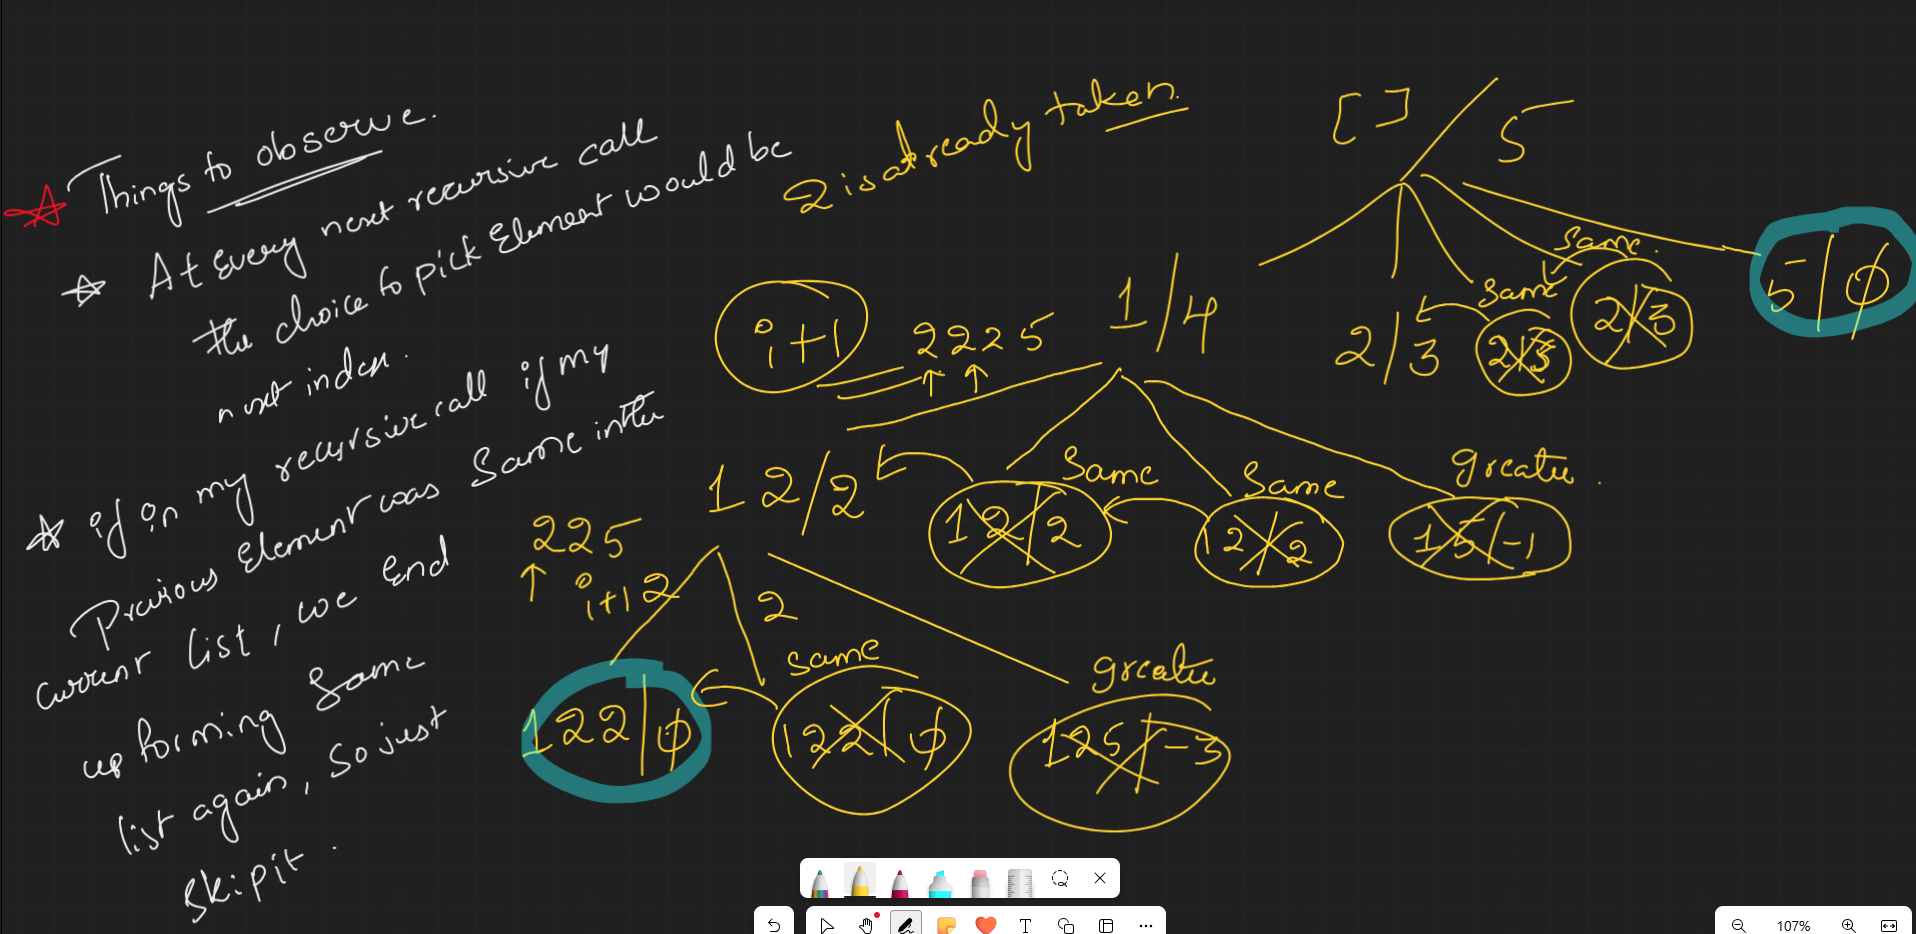 Things to observe.
At Every next recursive call
the choice to pick Element would be
next index.
if in my recursive call if my
Previous Element was Same in the
current list, we end
up forming Same
list again, so just
skip it.
2 is already taken.
[ ] / 5
1/4
2/3
Same
2/3
Same.
2/3
5/φ
i+1
2 2 2 5
1 2/2
Same
1 2/2
Same
1 2/2
greater.
1 5/-1
2 2 5
i+1
2
2
1 2 2/φ
Same
1 2 2/φ
greater
1 2 5/-3
T
107%